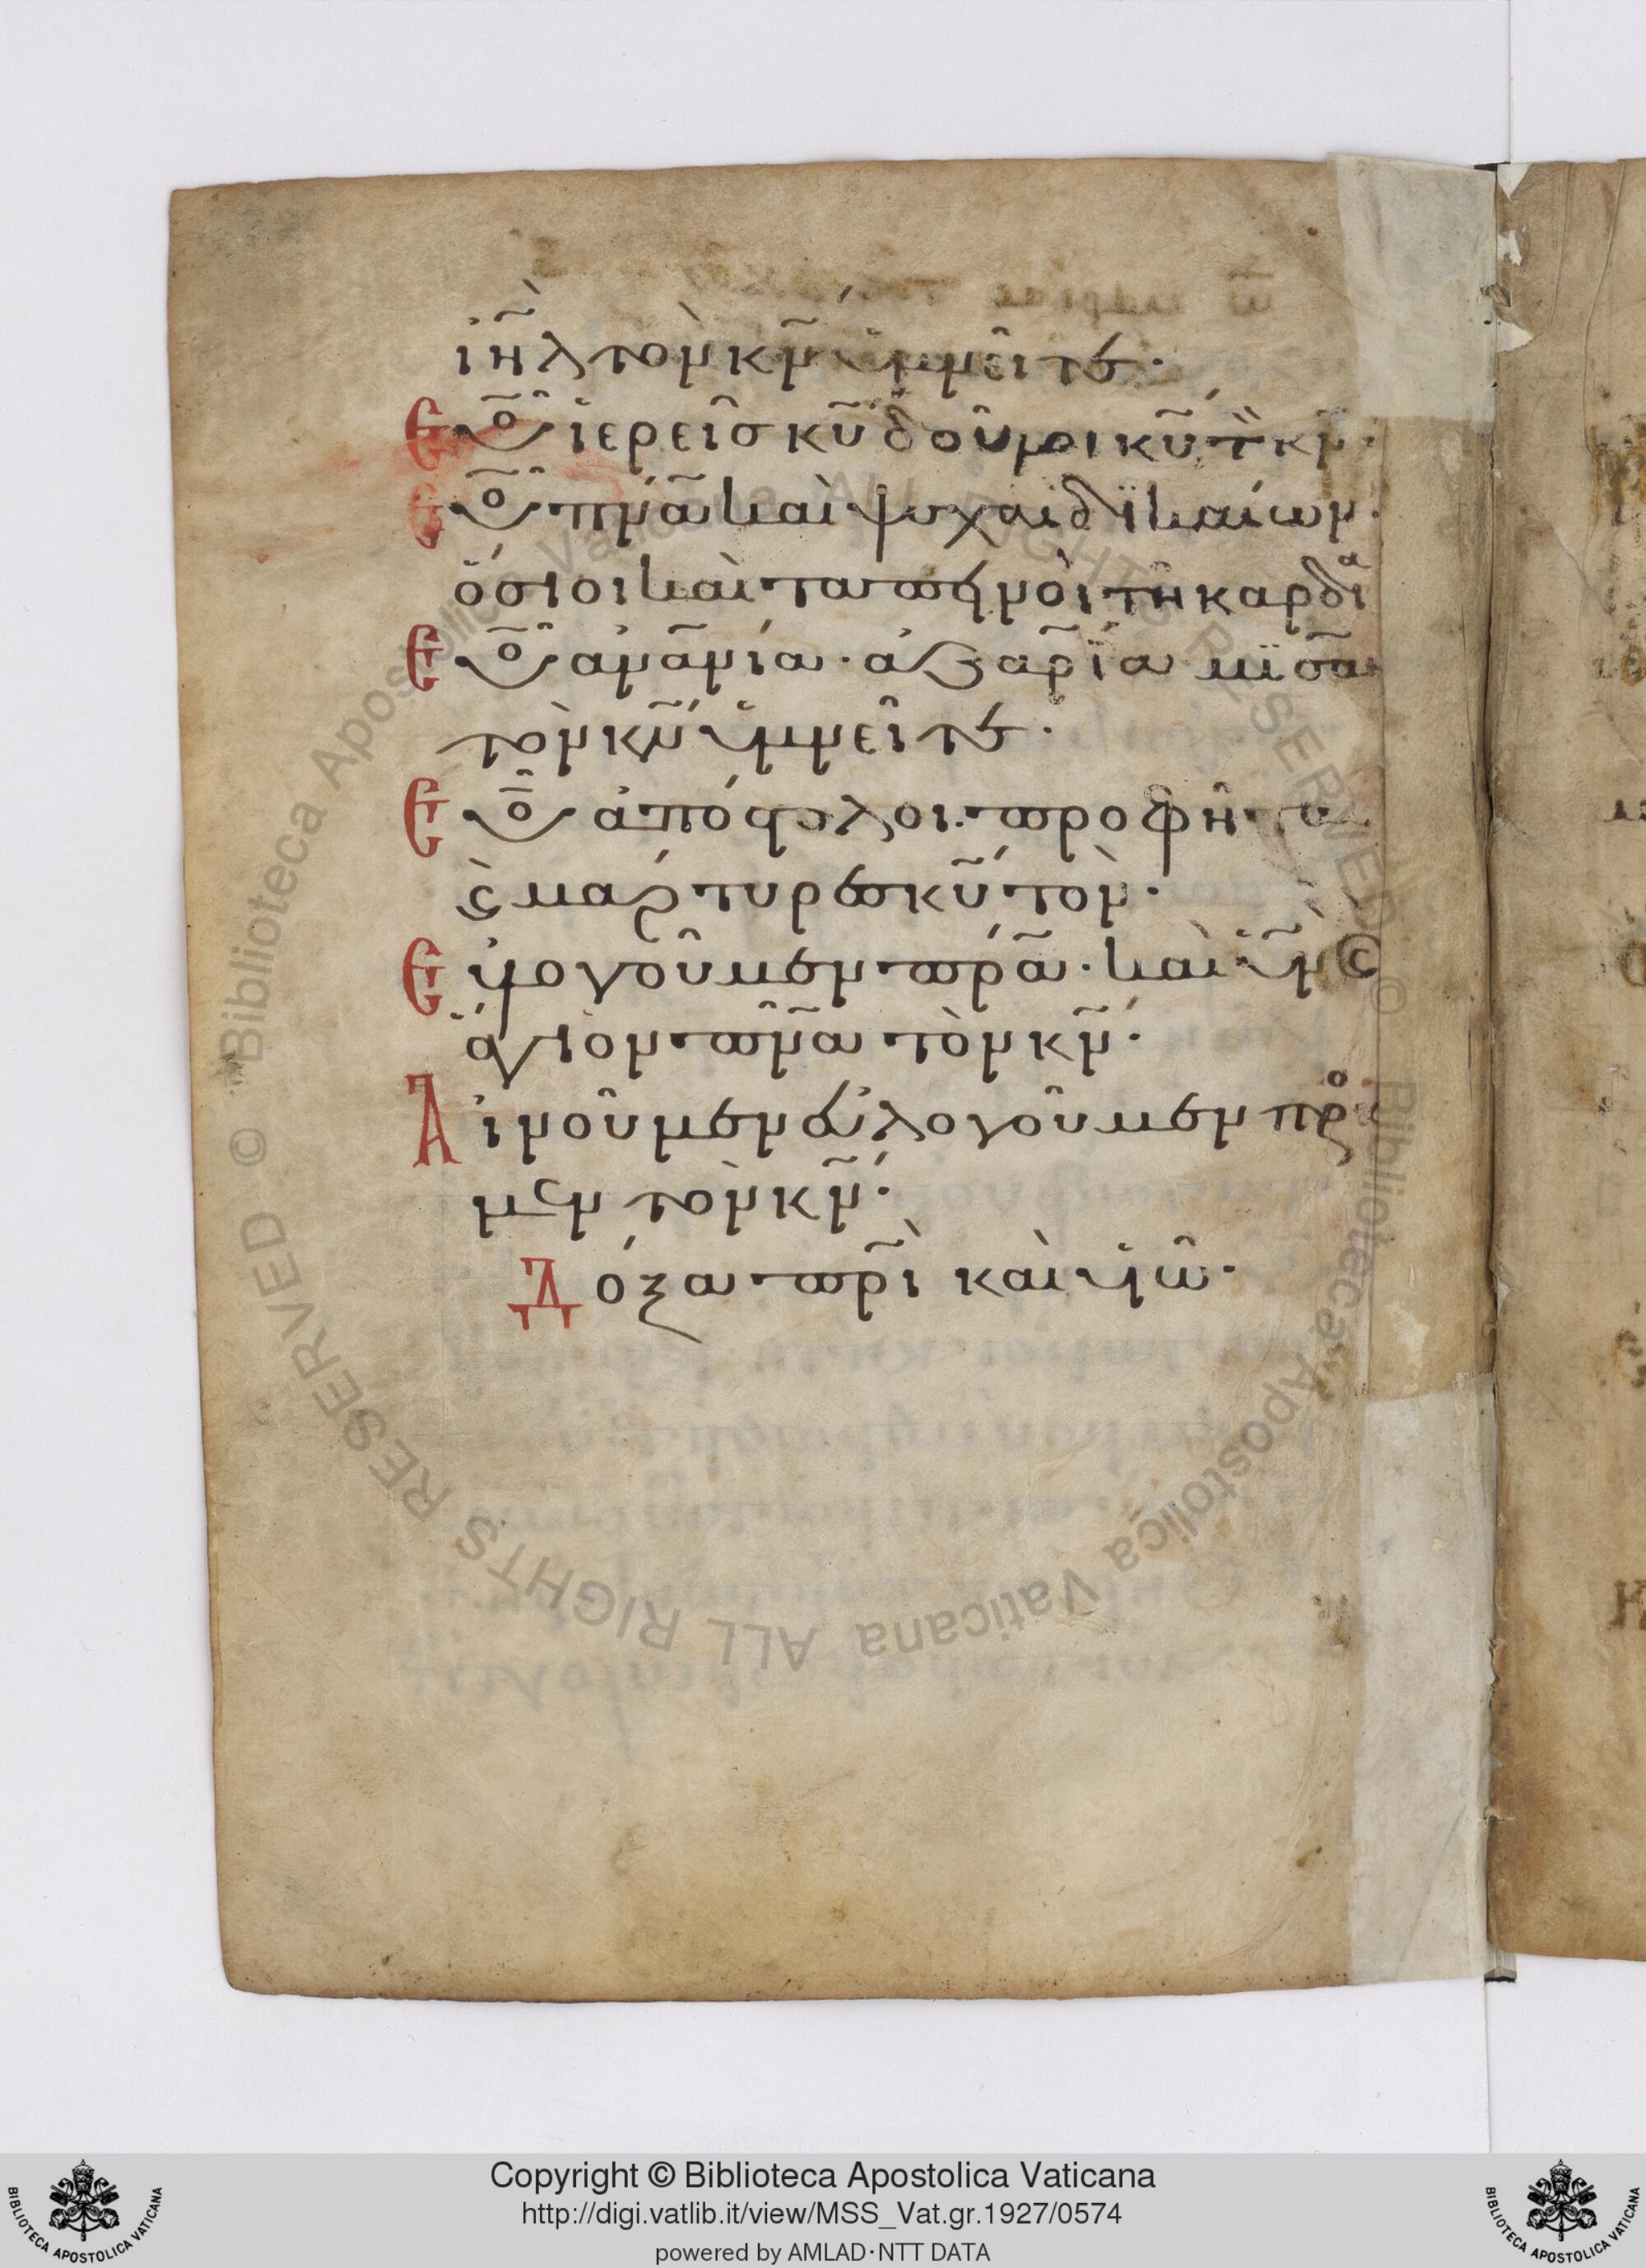 ιηλ τὸν κν ὑμνεῖτε·
Ευο ἱερεῖς κυ δοῦλοι κυ τὸν κν·
Ευο πνα καὶ ψυχαὶ δικαίων·
ὅσιοι καὶ ταπεινοὶ τῆ καρδία
Ευο ἀνανία· ἀζαρία μισα
τὸν κν ὑμνεῖτε·
Ευο ἀπόστολοι· προφῆται
καὶ μάρτυρες κυ τὸν·
Εὐλογοῦμεν πρα· καὶ υν
ἅγιον πνα τὸν κν·
Αἰνοῦμεν εὐλογοῦμεν προσ
μεν τὸν κν·
Δόξα πρι καὶ υιω·
© Biblioteca Apostolica Vaticana ALL RIGHTS RESERVED
© Biblioteca Apostolica Vaticana ALL RIGHTS RESERVED
Copyright © Biblioteca Apostolica Vaticana
http://digi.vatlib.it/view/MSS_Vat.gr.1927/0574
powered by AMLAD·NTT DATA
BIBLIOTECA APOSTOLICA VATICANA
BIBLIOTECA APOSTOLICA VATICANA